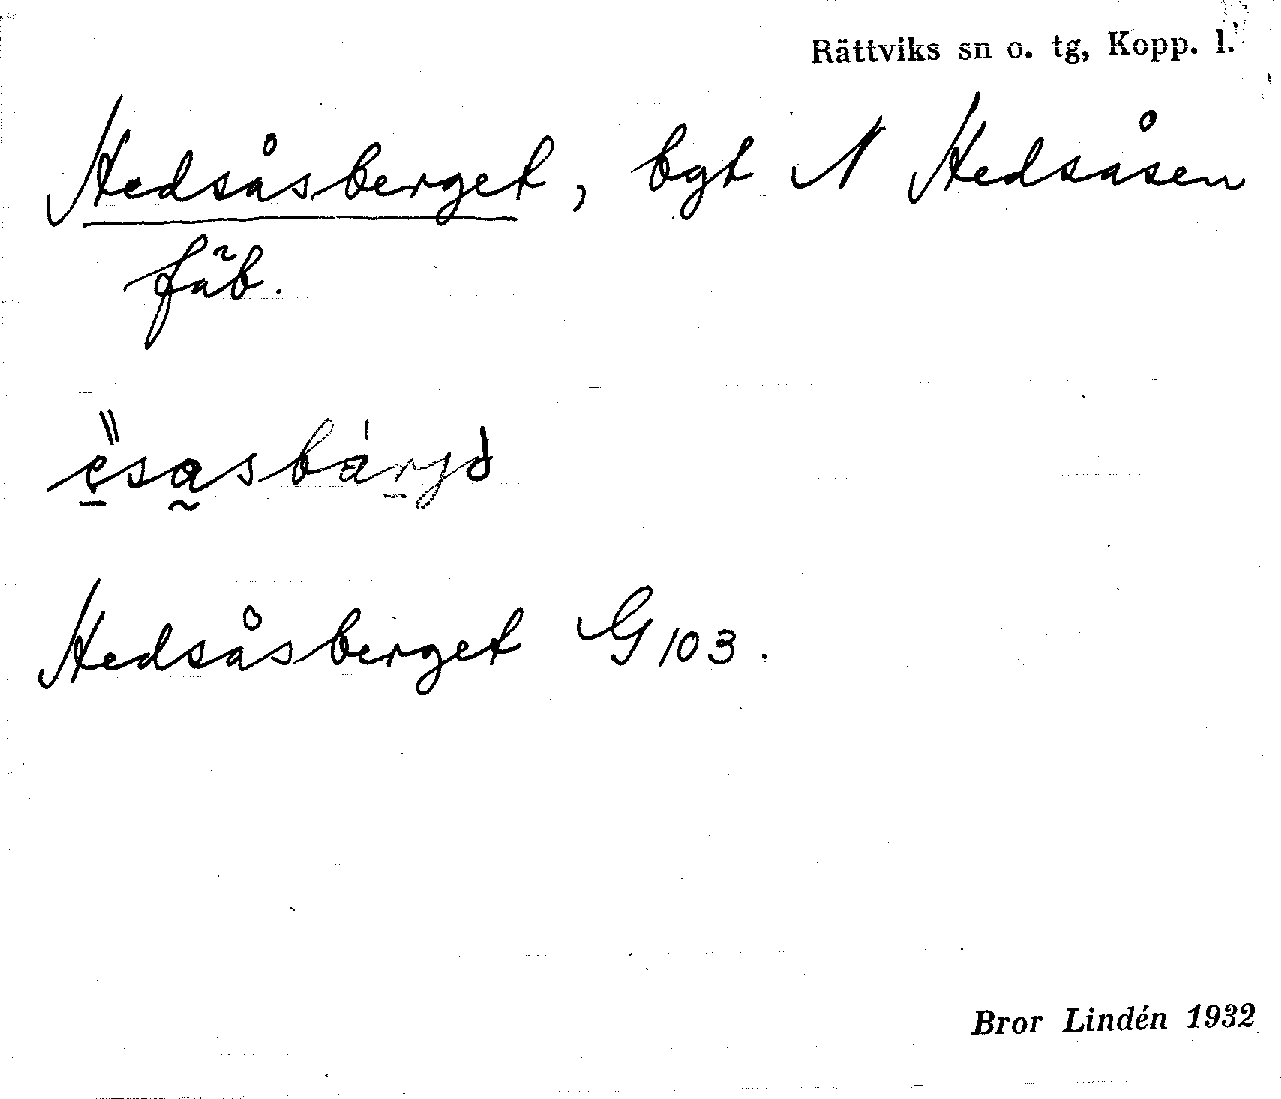 Rättviks sn o. tg, Kopp. l.
Hedsåsberget, bgt N Hedsåsen
fäb.
Hedsåsberget G 103.
Bror Lindén 1932